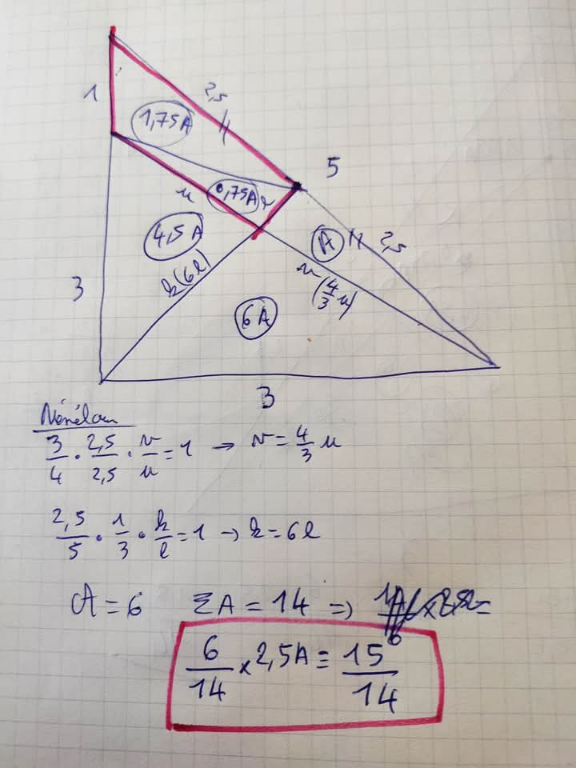 1
2,5
1,75A
5
u
0,75A
4,5A
A
2,5
k(6l)
v(4/3 u)
3
6A
3
3/4 · 2,5/2,5 · v/u = 1 → v = 4/3 u
2,5/5 · 1/3 · k/l = 1 → k = 6l
A = 6 ΣA = 14 ⇒
6/14 × 2,5A = 15/14